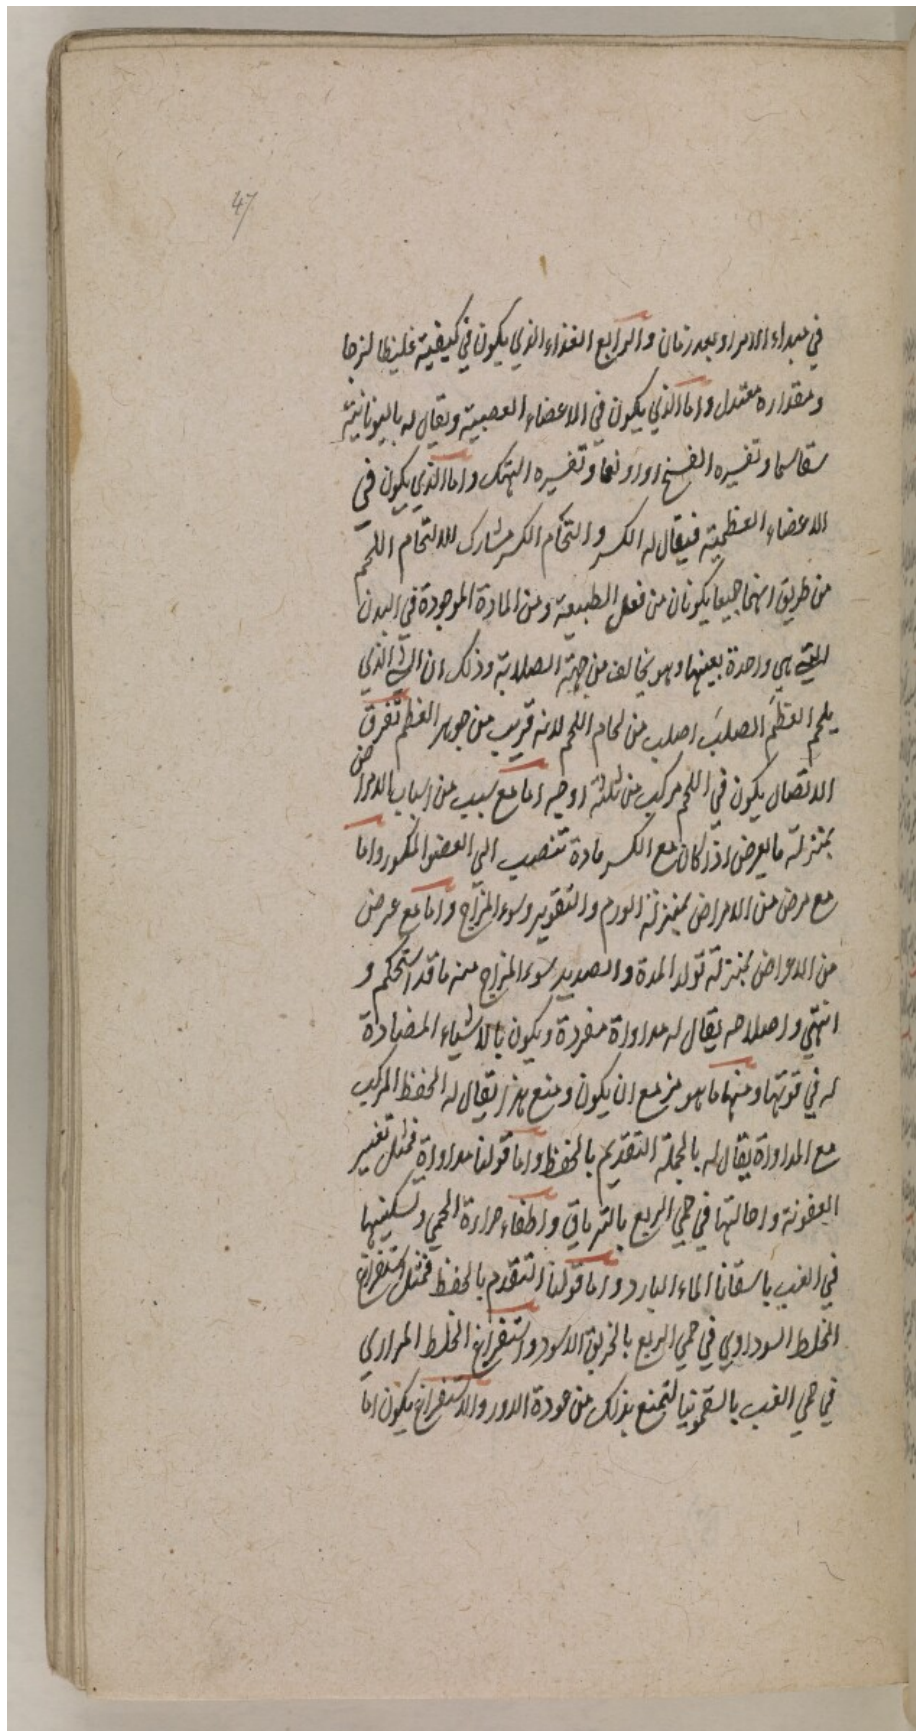 47
في مبداء الامر او بعد زمان والرابع الغذاء الذي يكون في كيفيته غليظا لزجا
ومقداره معتدل واما الذي يكون في الاعضاء العصبية ويقال له باليونانية
سقاسما وتفسيره الفسخ او رونما وتفسيره الهتك واما الذي يكون في
الاعضاء العظمية فيقال له الكسر والتحام الكسر مشارك للالتحام اللحم
من طريق انهما جميعا يكونان من فعل الطبيعة ومن المادة الموجودة في البدن
التي هي واحدة بعينها وهو يخالف من جهة الصلابة وذلك ان الشئ الذي
يلحم العظم الصلب اصلب من لحام اللحم لانه قريب من جوهر العظم تفرق
الاتصال يكون في اللحم مركب من ثلثة اوجه اما مع سبب من اسباب الامراض
بمنزلة ما يعرض اذا كان مع الكسر مادة تنصب الى العضو المكسور واما
مع مرض من الامراض بمنزلة الورم والتقوير وسوء المزاج واما مع عرض
من الاعراض بمنزلة تولد المدة والصديد سوء المزاج منه ما قد استحكم و
انتهى واصلاحه يقال له مداواة مفردة ويكون بالاشياء المضادة
له في قوتها ومنها ما هو مزمع ان يكون ومنع هذا يقال له الحفظ المركب
مع المداواة يقال له بالجملة التقديم بالحفظ واما قولنا مداواة فمثل تغير
العفونة واحالتها في حمى الربع بالترياق واطفاء حرارة الحمى وتسكينها
في الغب باسقانا الماء البارد واما قولنا التقدم بالحفظ فمثل استفراغ
الخلط السوداوي في حمى الربع بالخربق الاسود واستفراغ الخلط المراري
في حمى الغب بالسقمونيا لتمنع بذلك من عودة الدور والاستفراغ يكون اما